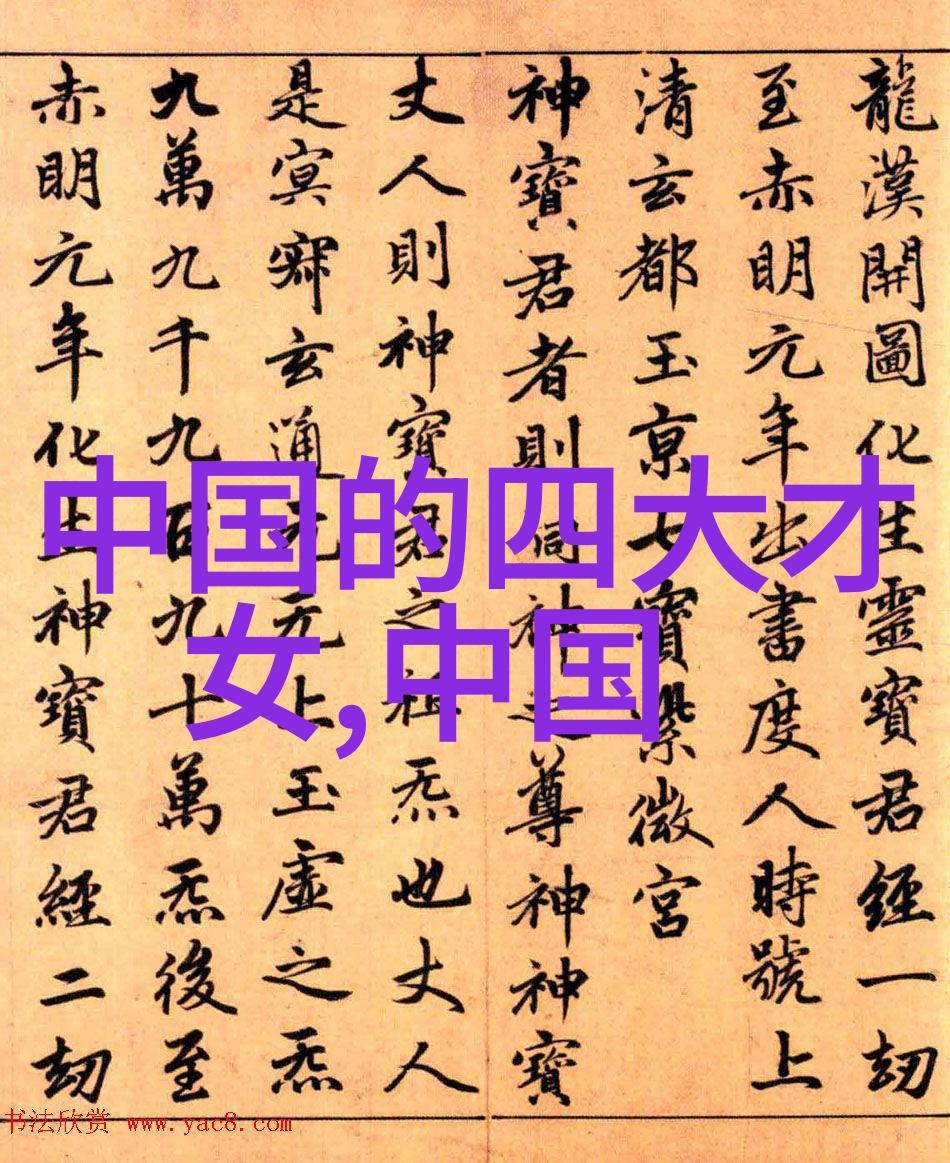 龍漢開圖化生靈寶君經一劫
至赤明元年出書度人時號上
清玄都玉京七寶紫微宮
神寶君者則洞神之尊神神寶
丈人則神寶君之祖炁也丈人
是冥寂玄通元无上玉虛之炁
九萬九千九百九十萬炁後至
赤明元年化生神寶君經二劫
中国的四大才
女,中国
书法欣赏 www.yac8.com